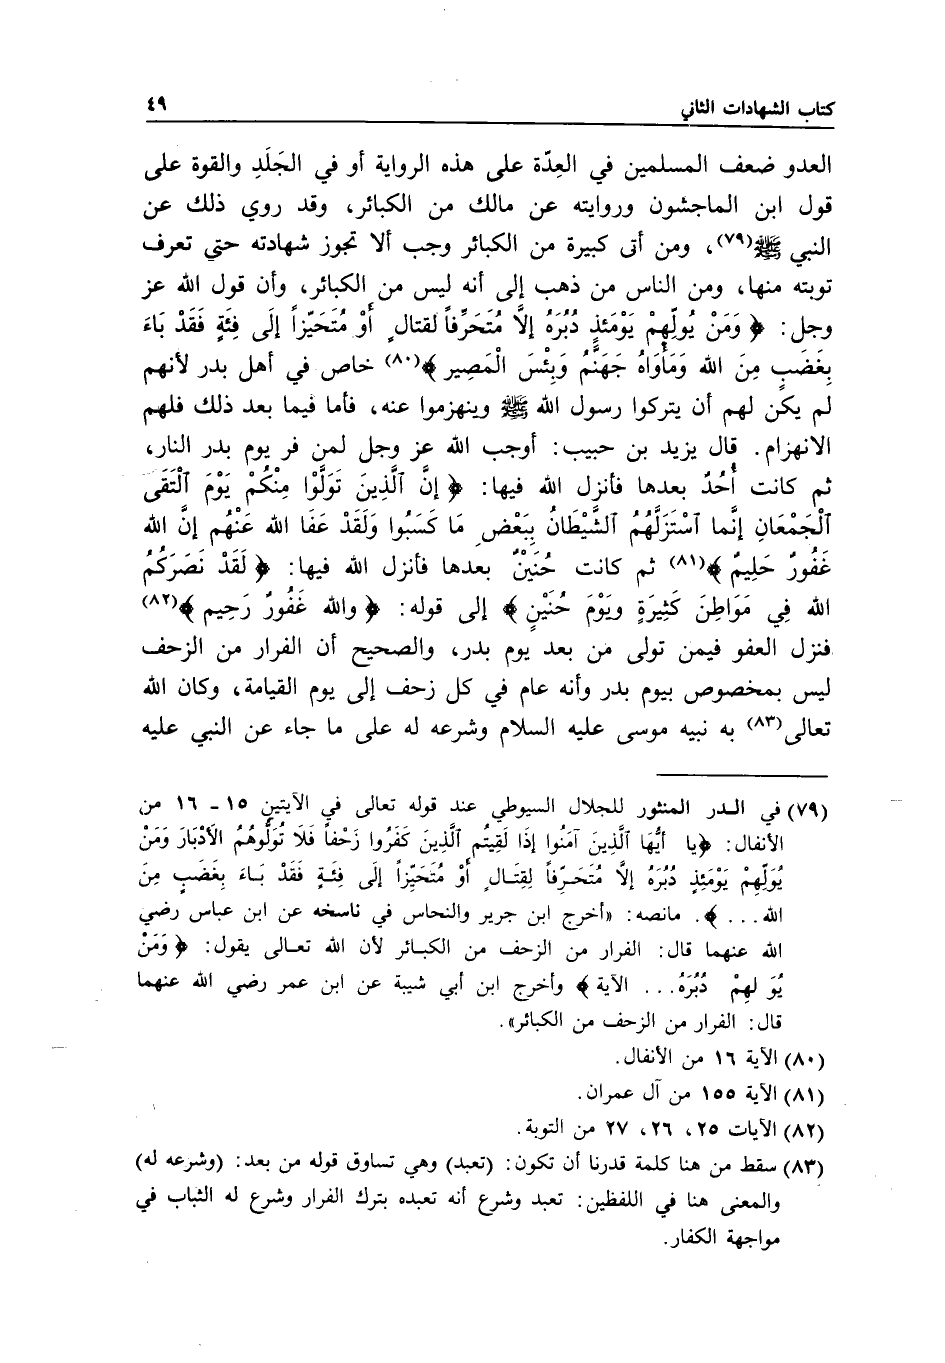 كتاب الشهادات الثاني ٤٩
العدو ضعف المسلمين في العِدّة على هذه الرواية أو في الجَلَدِ والقوة على
قول ابن الماجشون وروايته عن مالك من الكبائر، وقد روي ذلك عن
النبي ﷺ(٧٩)، ومن أتى كبيرة من الكبائر وجب ألا تجوز شهادته حتى تعرف
توبته منها، ومن الناس من ذهب إلى أنه ليس من الكبائر، وأن قول الله عز
وجل: ﴿ وَمَنْ يُولِّهِمْ يَوْمَئِذٍ دُبُرَهُ إلاَّ مُتَحَرِّفاً لقتالٍ أَوْ مُتَحَيّزاً إلَى فِئَةٍ فَقَدْ بَاءَ
بِغَضَبٍ مِنَ الله وَمَأْوَاهُ جَهَنَّمُ وَبِئْسَ الْمَصِير ﴾(٨٠) خاص في أهل بدر لأنهم
لم يكن لهم أن يتركوا رسول الله ﷺ وينهزموا عنه، فأما فيما بعد ذلك فلهم
الانهزام. قال يزيد بن حبيب: أوجب الله عز وجل لمن فر يوم بدر النار،
ثم كانت أُحُدٌ بعدها فأنزل الله فيها: ﴿ إنَّ ٱلَّذِينَ تَوَلَّوْا مِنْكُمْ يَوْمَ ٱلْتَقَى
ٱلْجَمْعَانِ إنَّما ٱسْتَزَلَّهُمُ ٱلشَّيْطَانُ بِبَعْضِ مَا كَسَبُوا وَلَقَدْ عَفَا الله عَنْهُم إنَّ الله
غَفُورٌ حَلِيمٌ ﴾(٨١) ثم كانت حُنَيْنٌ بعدها فأنزل الله فيها: ﴿ لَقَدْ نَصَرَكُمُ
الله فِي مَوَاطِنَ كَثِيرَةٍ ويَوْمَ حُنَيْنٍ ﴾ إلى قوله: ﴿ والله غَفُورٌ رَحِيم ﴾(٨٢)
فنزل العفو فيمن تولى من بعد يوم بدر، والصحيح أن الفرار من الزحف
ليس بمخصوص بيوم بدر وأنه عام في كل زحف إلى يوم القيامة، وكان الله
تعالى(٨٣) به نبيه موسى عليه السلام وشرعه له على ما جاء عن النبي عليه
(٧٩) في الـدر المنثور للجلال السيوطي عند قوله تعالى في الآيتين ١٥ - ١٦ من
الأنفال: ﴿يا أَيُّهَا ٱلَّذِينَ آمَنُوا إذَا لَقِيتُم ٱلَّذِينَ كَفَرُوا زَحْفاً فَلَا تُوَلُّوهُمُ الأَدْبَارَ وَمَنْ
يُوَلِّهِمْ يَوْمَئِذٍ دُبُرَهُ إلاَّ مُتَحَـرِّفاً لِقِتَـالٍ أَوْ مُتَحَيِّزاً إلَى فِئَـةٍ فَقَدْ بَـاءَ بِغَضَبٍ مِنَ
الله ... ﴾. مانصه: «أخرج ابن جرير والنحاس في ناسخه عن ابن عباس رضي
الله عنهما قال: الفرار من الزحف من الكبـائر لأن الله تعـالى يقول: ﴿ وَمَنْ
يُوَ لهِمْ دُبُرَهُ... الآية ﴾ وأخرج ابن أبي شيبة عن ابن عمر رضي الله عنهما
قال: الفرار من الزحف من الكبائر».
(٨٠) الآية ١٦ من الأنفال.
(٨١) الآية ١٥٥ من آل عمران.
(٨٢) الآيات ٢٥، ٢٦، ٢٧ من التوبة.
(٨٣) سقط من هنا كلمة قدرنا أن تكون: (تعبد) وهي تساوق قوله من بعد: (وشرعه له)
والمعنى هنا في اللفظين: تعبد وشرع أنه تعبده بترك الفرار وشرع له الثباب في
مواجهة الكفار.